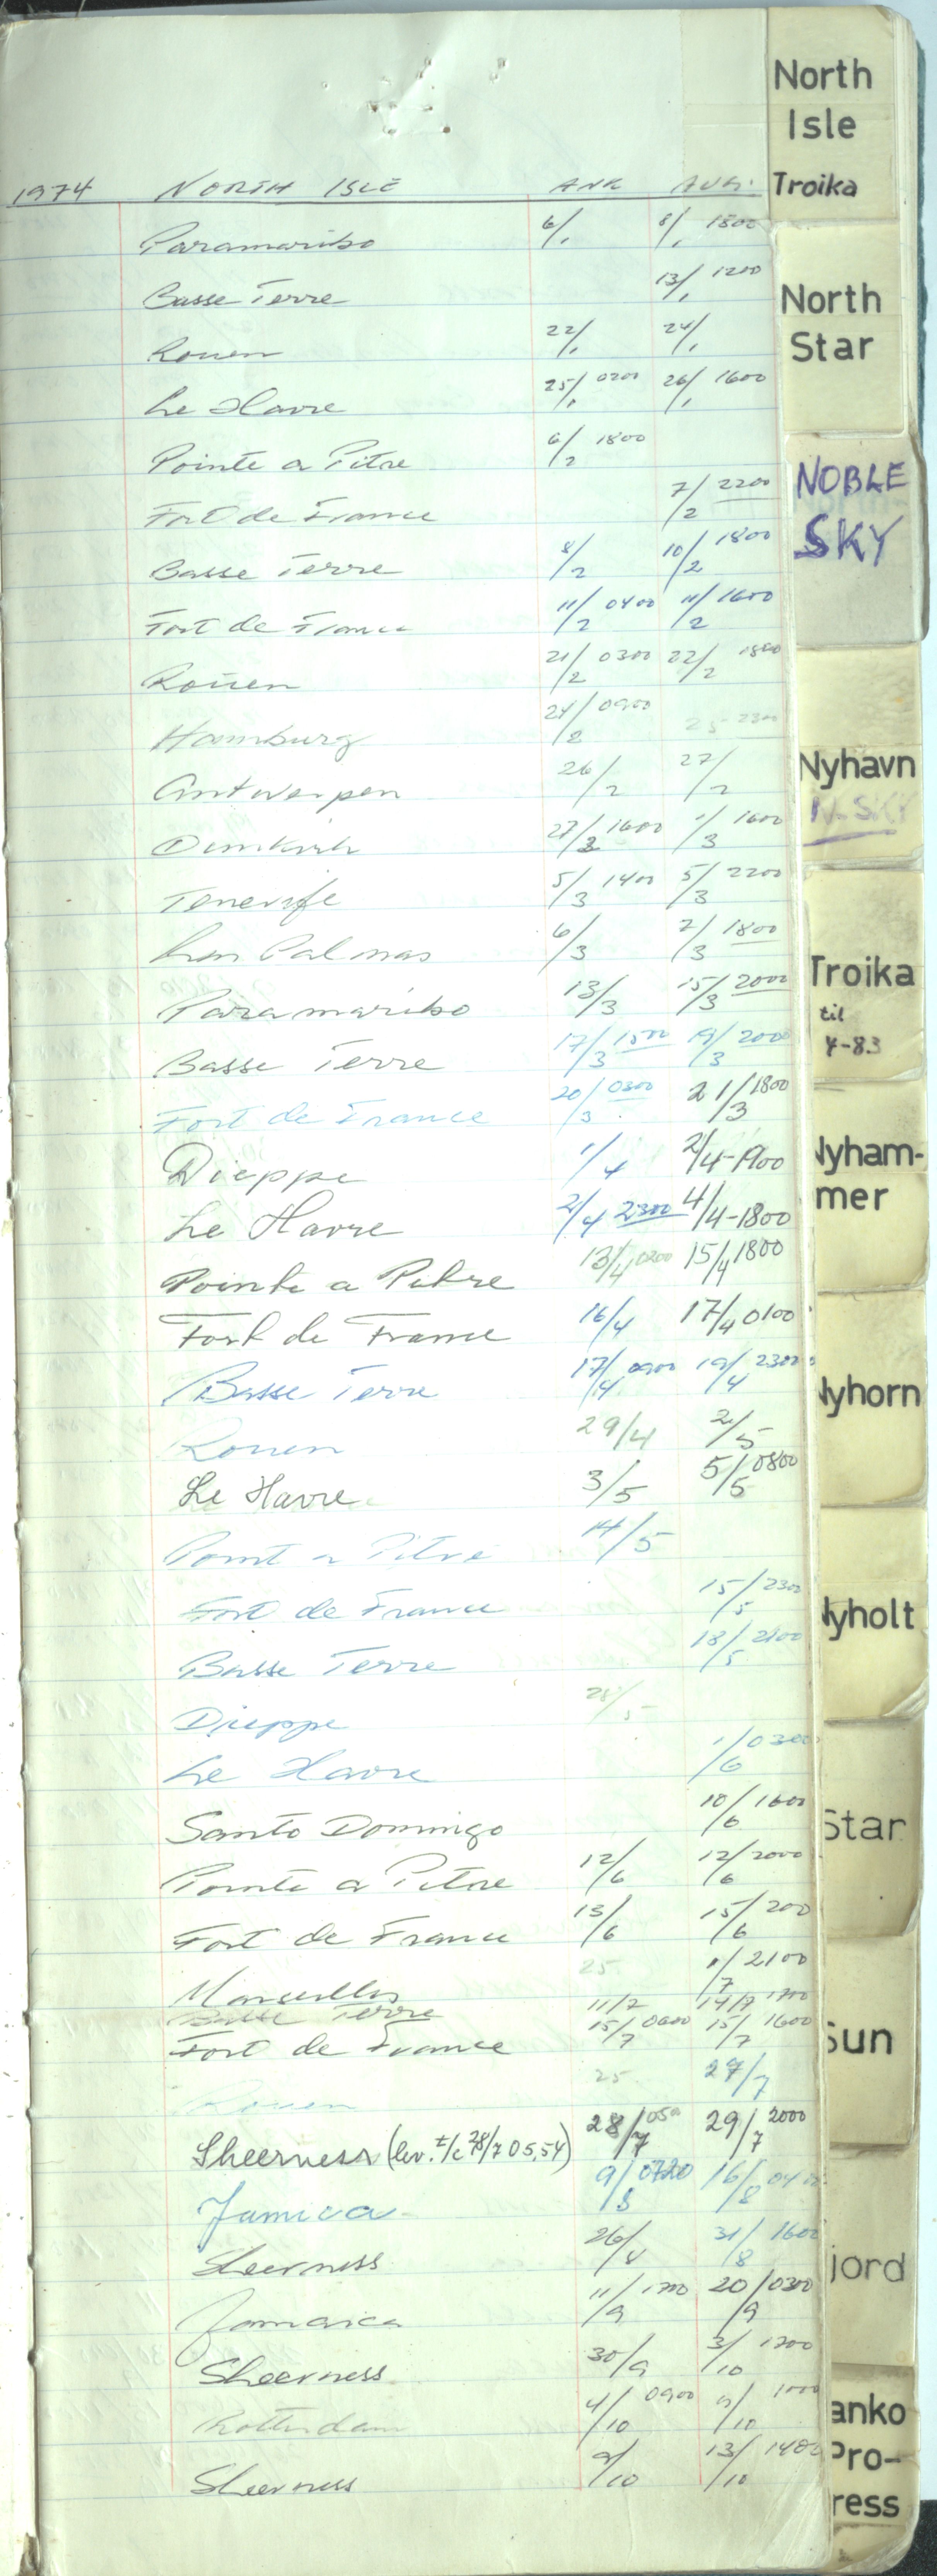 1974 NORTH ISLE ANK AVG.
Paramaribo 6/1 8/1 1800
Basse Terre 13/1 1200
Rouen 22/1 24/1
Le Havre 25/1 0200 26/1 1600
Pointe a Pitre 6/2 1800
Fort de France 7/2 2200
Basse Terre 8/2 10/2 1800
Fort de France 11/2 0400 11/2 1600
Rouen 21/2 0300 22/2 1800
Hamburg 24/2 0900 25 2300
Antwerpen 26/2 27/2
Dunkirk 27/2 1600 1/3 1600
Tenerife 5/3 1400 5/3 2200
Las Palmas 6/3 7/3 1800
Paramaribo 13/3 15/3 2000
Basse Terre 17/3 1500 19/3 2000
Fort de France 20/3 0300 21/3 1800
Dieppe 1/4 2/4-1900
Le Havre 2/4 2300 4/4-1800
Pointe a Pitre 13/4 0200 15/4 1800
Fort de France 16/4 17/4 0100
Basse Terre 17/4 0900 19/4 2300
Rouen 29/4 2/5
Le Havre 3/5 5/5 0800
Point a Pitre 14/5
Fort de France 15/5 2300
Basse Terre 18/5 2100
Dieppe 28/5
Le Havre 1/6 0300
Santo Domingo 10/6 1600
Pointe a Pitre 12/6 12/6 2000
Fort de France 13/6 15/6 200
Marseilles 25. 1/7 2100
Basse Terre 11/7 14/7 1700
Fort de France 15/7 0600 15/7 1600
Rouen 25 27/7
Sheerness (lev. t/c 28/7 05,54) 28/7 29/7 2000
Jamica 9/8 0720 16/8
Sheerness 26/8 31/8 1600
Jamaica 11/9 1700 20/9 0300
Sheerness 30/9 3/10 1200
Rotterdam 4/10 0900
Sheerness 9/10 13/10 1400
North
Isle
Troika
North
Star
NOBLE
SKY
Nyhavn
N. SKY
Troika
til
4-83
Nyham-
mer
Nyhorn
Nyholt
Star
Sun
jord
anko
Pro-
ress